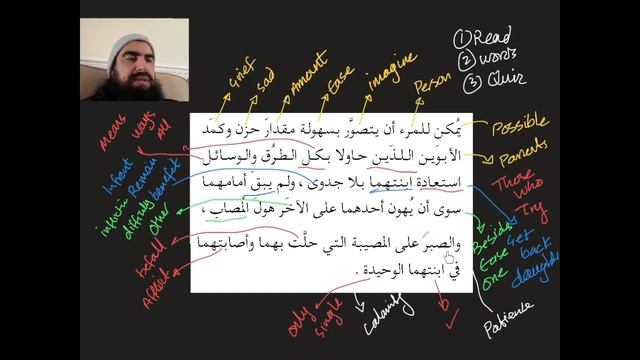 ① Read
② words
③ Quiz
Grief
Sad
Amount
Ease
imagine
Person
means
ways
All
Possible
Parents
يُمكن للمرء أن يتصوَّر بسهولة مقدارَ حزن وكمَد
الأبوَين اللذَين حاولا بكل الطرُق والوسائل
استعادة ابنتهما بلا جدوى ، ولم يبقَ أمامهما
سوى أن يُهون أحدهما على الآخَر هولَ المُصاب ،
والصبرَ على المصيبة التي حلَّت بهما وأصابتهما
في ابنتهما الوحيدة .
Infront
Remain
benefit
Those
Who
Try
difficulty
other
Besides
Ease
one
Get
back
daughter
befall
Afflict
only
single
Calamity
Patience